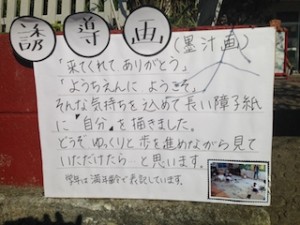 誘導画(墨汁画)
「来てくれて ありがとう」
「ようちえんに ようこそ」
そんな気持ちを込めて長い障子紙
に "自分" を描きました。
どうぞ ゆっくりと 歩を進めながら 見て
いただけたら と思います。
学年は 満年齢で 表記しています。